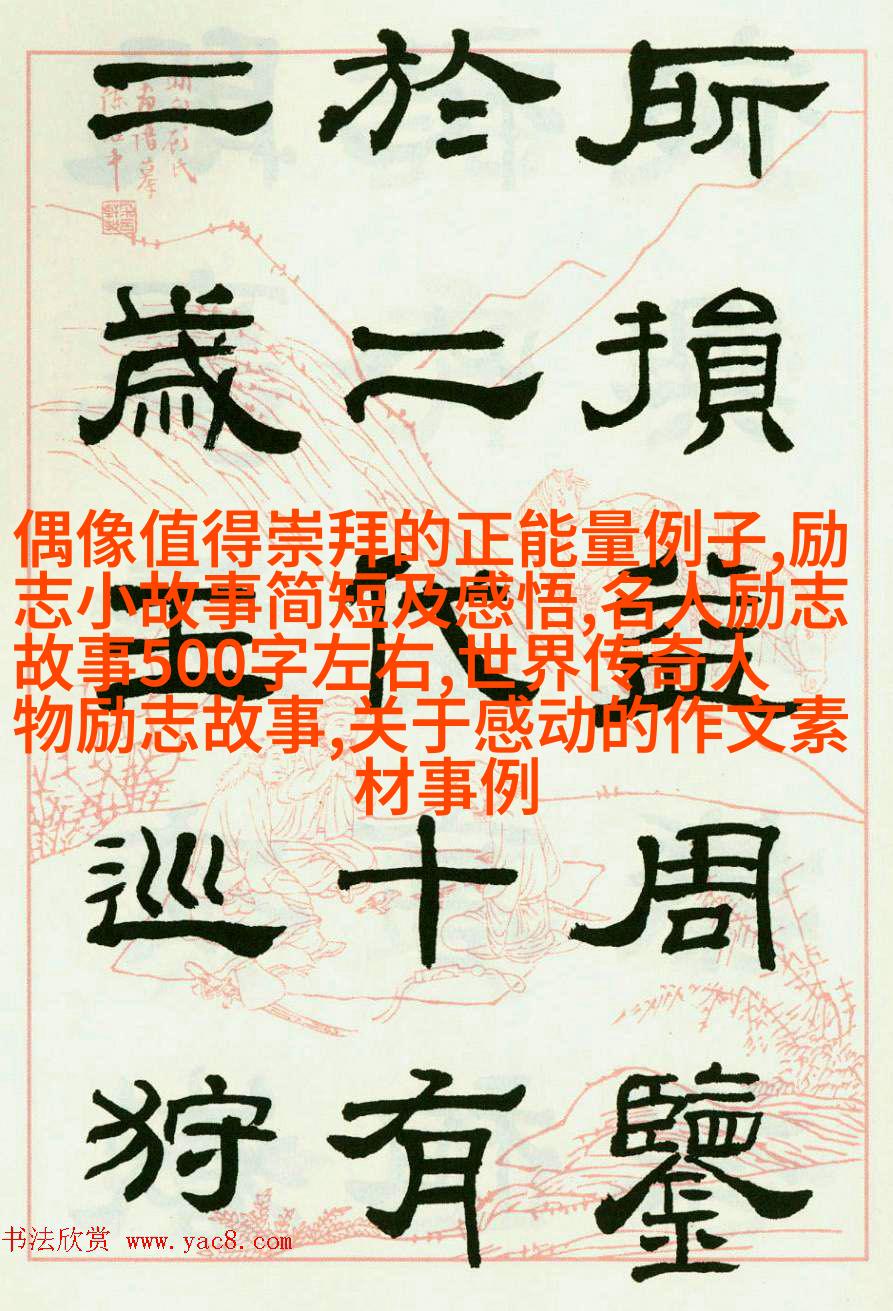 所損益周鑒
於二代十有
二歲王巡狩
偶像值得崇拜的正能量例子,励
志小故事简短及感悟,名人励志
故事500字左右,世界传奇人
物励志故事,关于感动的作文素
材事例
书法欣赏 www.yac8.com